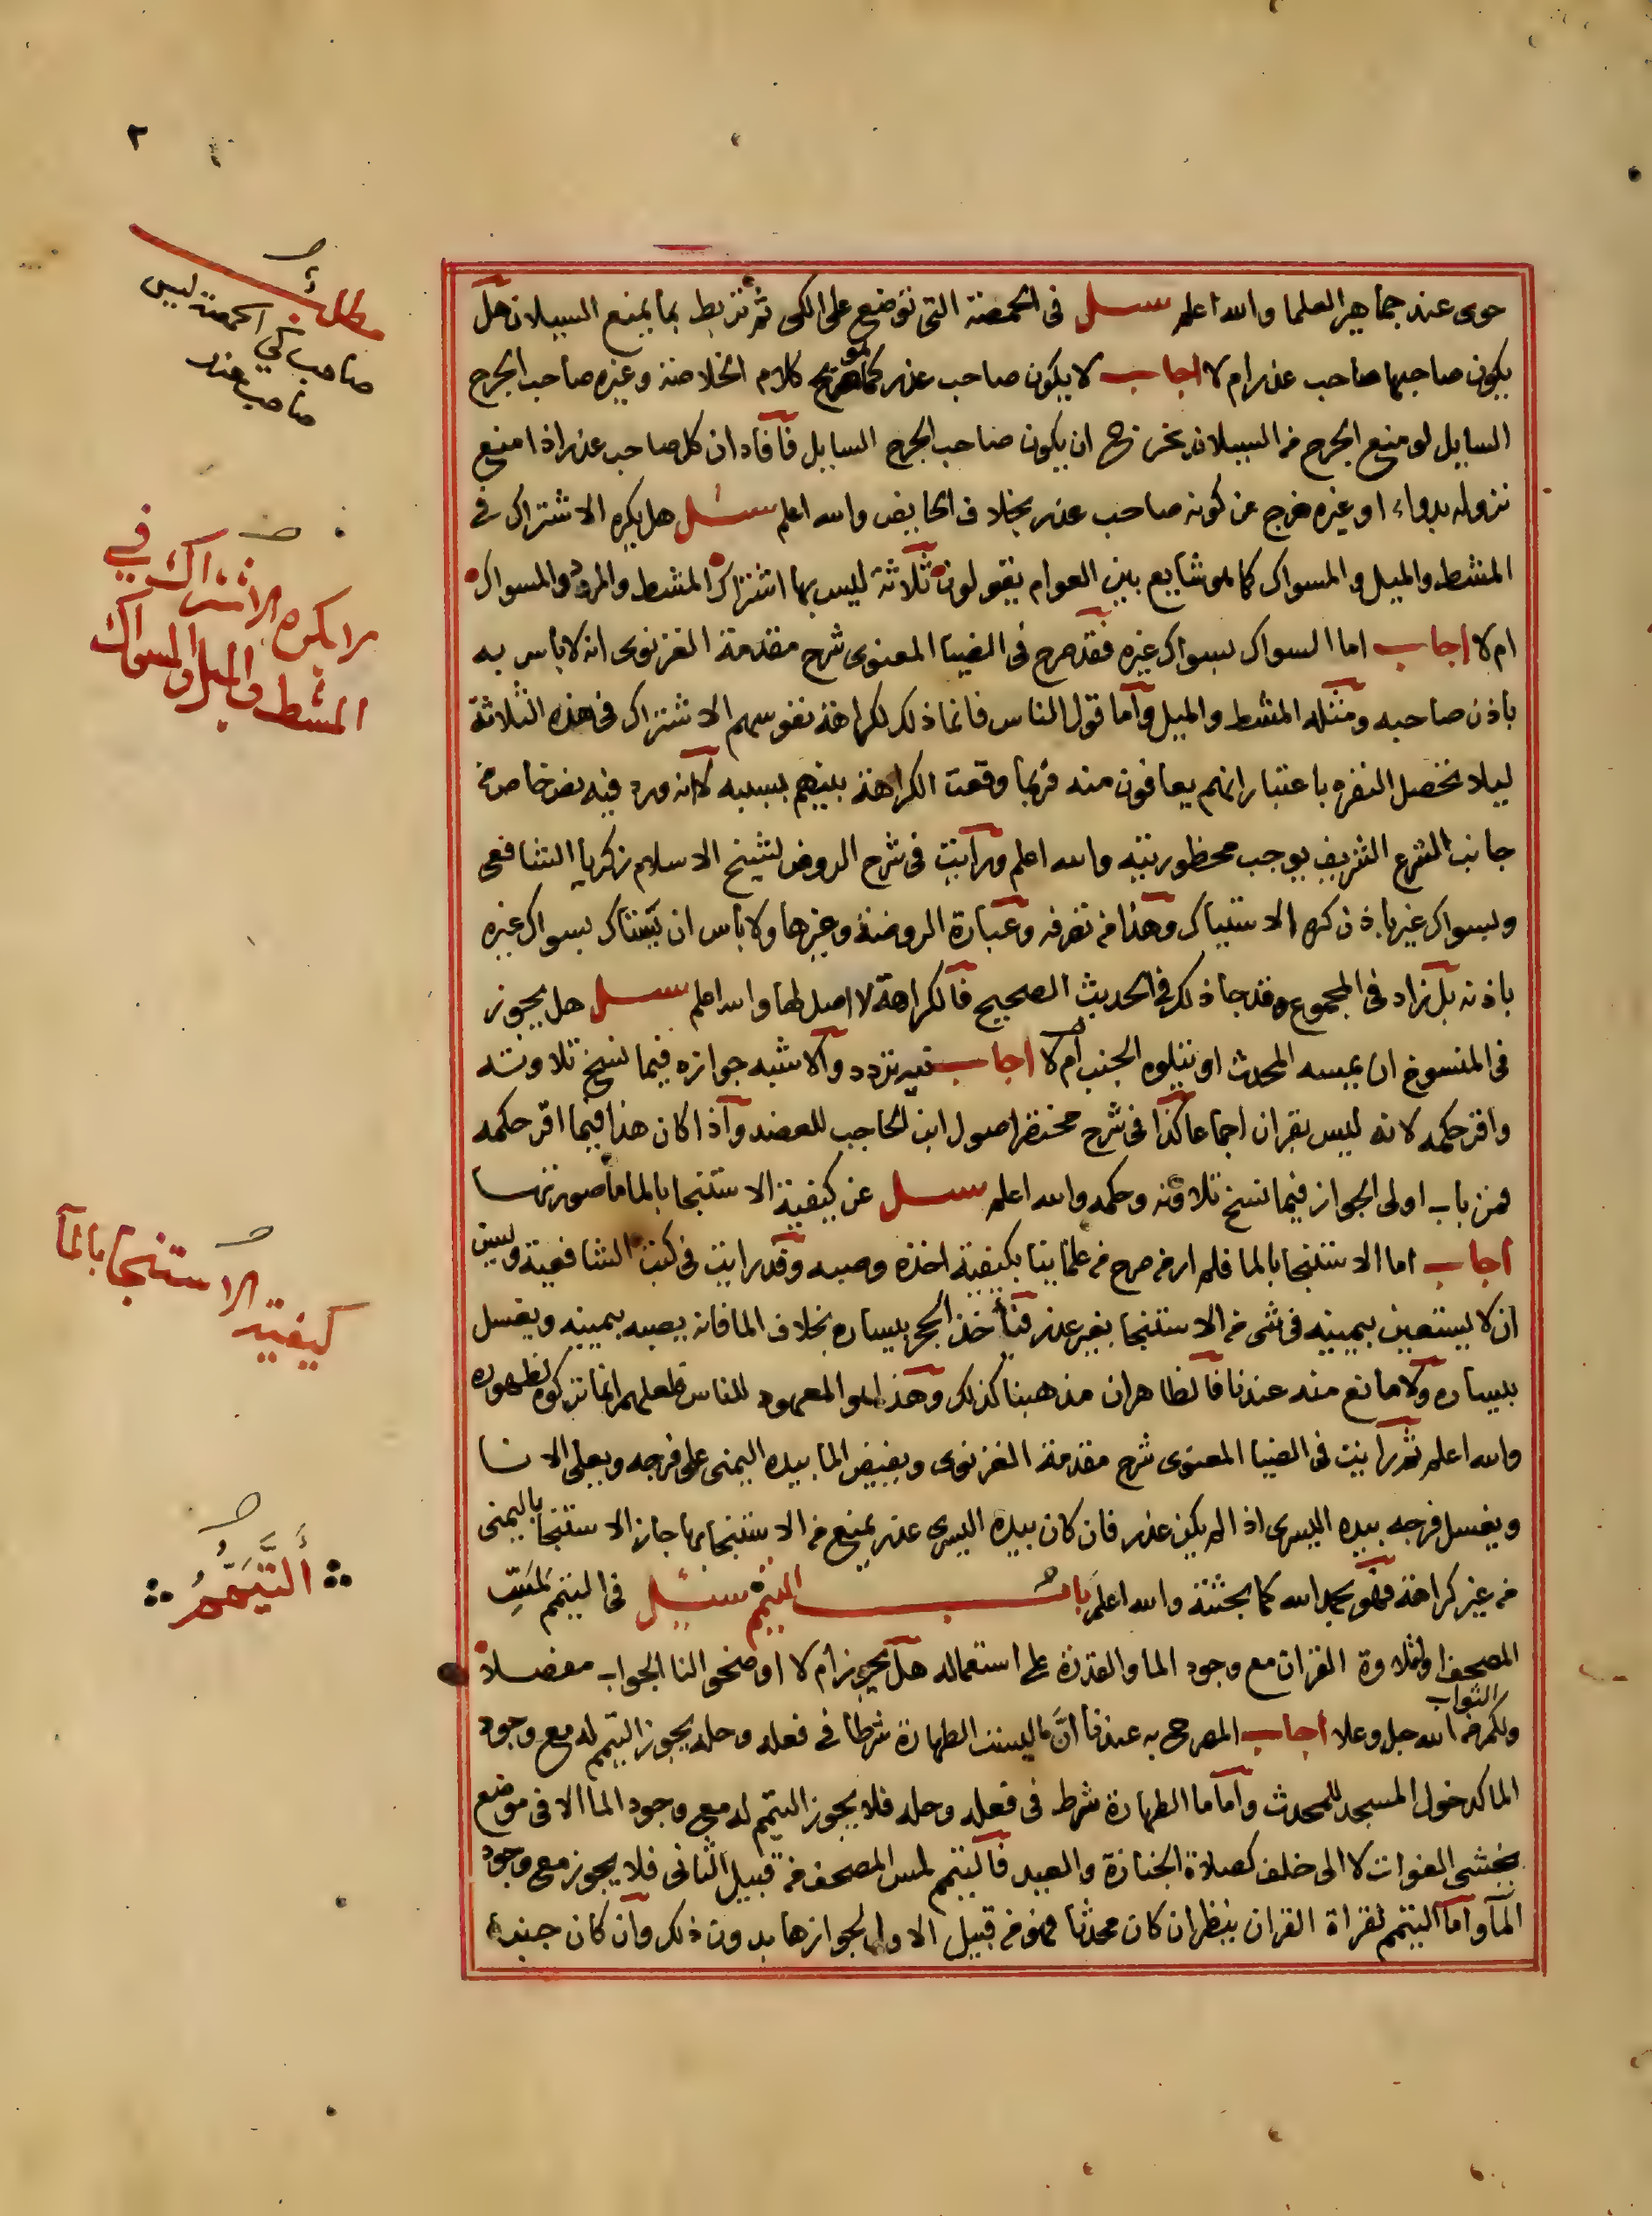 ٢
حوى عند جماهير العلما والله اعلم سئل فى الحمصة التى توضع على الكى ثم تربط بما يمنع السيلان هل
يكون صاحبها صاحب عذر ام لا اجاب لا يكون صاحب عذر كما هو صريح كلام الخلاصة وغيره صاحب الجرح
السايل لو منع الجرح من السيلان يخرج ان يكون صاحب الجرح السايل فافاد ان كل صاحب عذر اذا منع
نزوله بدواء او غيره خرج عن كونه صاحب عذر بخلاف الحايض والله اعلم سئل هل يكره الاشتراك فى
المشط والميل والمسواك كما هو شايع بين العوام يقولون ثلاثة ليس بها اشتراك المشط والمرود والمسواك
ام لا اجاب اما السواك بسواك غيره فقد صرح فى الضيا المعنوى شرح مقدمة الغزنوى انه لا باس به
باذن صاحبه ومثله المشط والميل واما قول الناس فانما ذلك لكراهة نفوسهم الاشتراك فى هذه الثلاثة
ليلا تحصل النفره باعتبار انهم يعافون منه فربما وقعت الكراهة بينهم بسببه لا انه ورد فيه نص خاص من
جانب الشرع الشريف يوجب محظوريته والله اعلم ورايت فى شرح الروض لشيخ الاسلام زكريا الشافعى
وبسواك غير باذن كره الاستياك وهذا من تصرفه وعبارة الروضة وغيرها ولا باس ان يستاك بسواك غيره
باذنه بل زاد فى المجموع وقد جا ذلك فى الحديث الصحيح فالكراهة لا اصل لها والله اعلم سئل هل يجوز
فى المنسوخ ان يمسه المحدث او يتلوه الجنب ام لا اجاب فيه تردد والاشبه جوازه فيما نسخ تلاوته
واقر حكمه لانه ليس بقران اجماعا كذا فى شرح مختصر اصول ابن الحاجب للعضد واذا كان هذا فيما اقر حكمه
فمن باب اولى الجواز فيما نسخ تلاوته وحكمه والله اعلم سئل عن كيفية الاستنجا بالما ما صورتها
اجاب اما الاستنجا بالما فلم ار من صرح من علماينا بكيفية اخذه وصبه وقد رايت فى كتب الشافعية ويسن
ان لا يستعين بيمينه فى شى من الاستنجا بغير عذر فيأخذ الحجر بيساره بخلاف الما فانه يصبه بيمينه ويغسل
بيساره ولا مانع منه عندنا فالظاهر ان مذهبنا كذلك وهذا هو المعهود للناس فلعلهم انما تركوه لظهوره
والله اعلم ثم رايت فى الضيا المعنوى شرح مقدمة الغزنوى ويفيض الما بيده اليمنى على فرجه ويعلى الانا
ويغسل فرجه بيده اليسرى اذا لم يكن عذر فان كان بيده اليسرى عذر يمنع من الاستنجا بها جاز الاستنجا باليمنى
من غير كراهة فهو بحمد الله كما بحثته والله اعلم باب التيمم سئل فى التيمم لمس
المصحف او لتلاوة القران مع وجود الما والقدرة على استعماله هل يجوز ام لا اوضحوا لنا الجواب مفصلا
ولكم من الله جل وعلا الثواب اجاب المصرح به عندنا ان ما ليست الطهارة شرطا فى فعله وحله يجوز التيمم له مع وجود
الما كدخول المسجد للمحدث واما ما الطهارة شرط فى فعله وحله فلا يجوز التيمم له مع وجود الما الا فى موضع
يخشى الفوات لا الى خلف كصلاة الجنازة والعيد فالتيمم لمس المصحف من قبيل الثانى فلا يجوز مع وجود
المآ واما التيمم لقراة القران ينظر ان كان محدثا فهو من قبيل الاول لجوازها بدون ذلك وان كان جنبا
مطلب
صاحب كي الحمصة ليس
صاحب عذر
لا يكره الاشتراك في
المشط والميل والمسواك
كيفية الاستنجا بالمآ
التَّيَمُّمُ